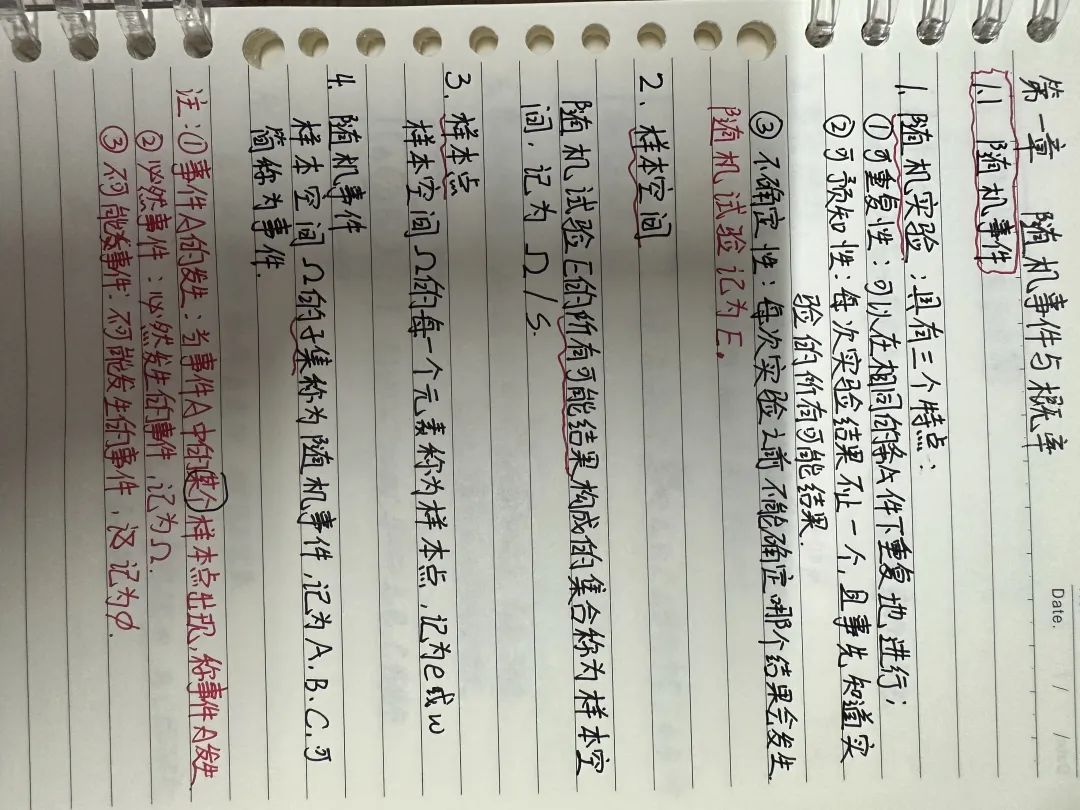 Date.
第一章 随机事件与概率
1.1 随机事件
1. 随机实验:具有三个特点:
①可重复性:可以在相同的条件下重复地进行;
②可预知性:每次实验结果不止一个,且事先知道实
验的所有可能结果.
③不确定性:每次实验之前不能确定哪个结果会发生
随机试验记为E.
2、样本空间
随机试验E的所有可能结果构成的集合称为样本空
间,记为Ω/S.
3、样本点
样本空间Ω的每一个元素称为样本点,记为e或w
4. 随机事件
样本空间Ω的子集称为随机事件,记为A.B.C,可
简称为事件.
注:①事件A的发生:当事件A中的某个样本点出现,称事件A发生
②必然事件:必然发生的事件,记为Ω.
③不可能事件:不可能发生的事件,记为φ.